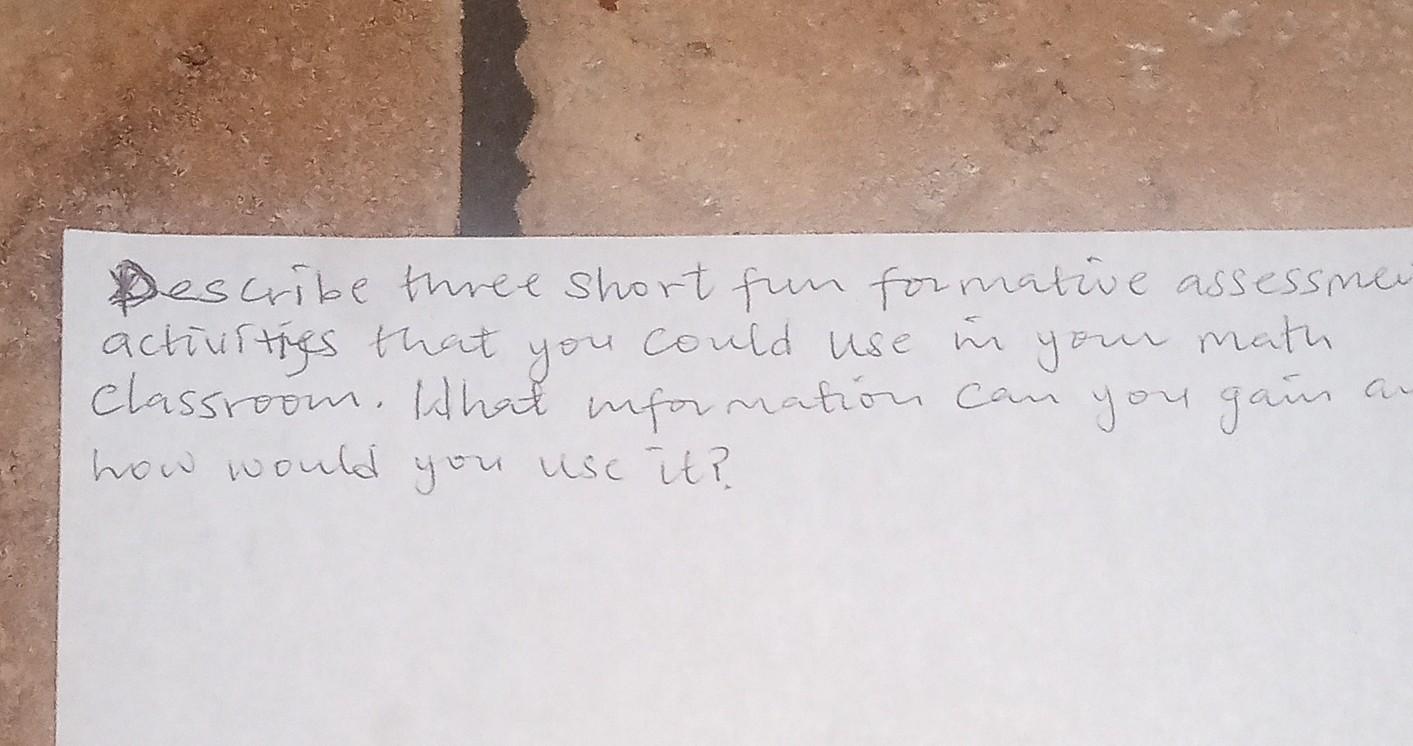 Describe three short fun formative assessmen
activities that you could use in your math
classroom. What information can you gain an
how would you use it?